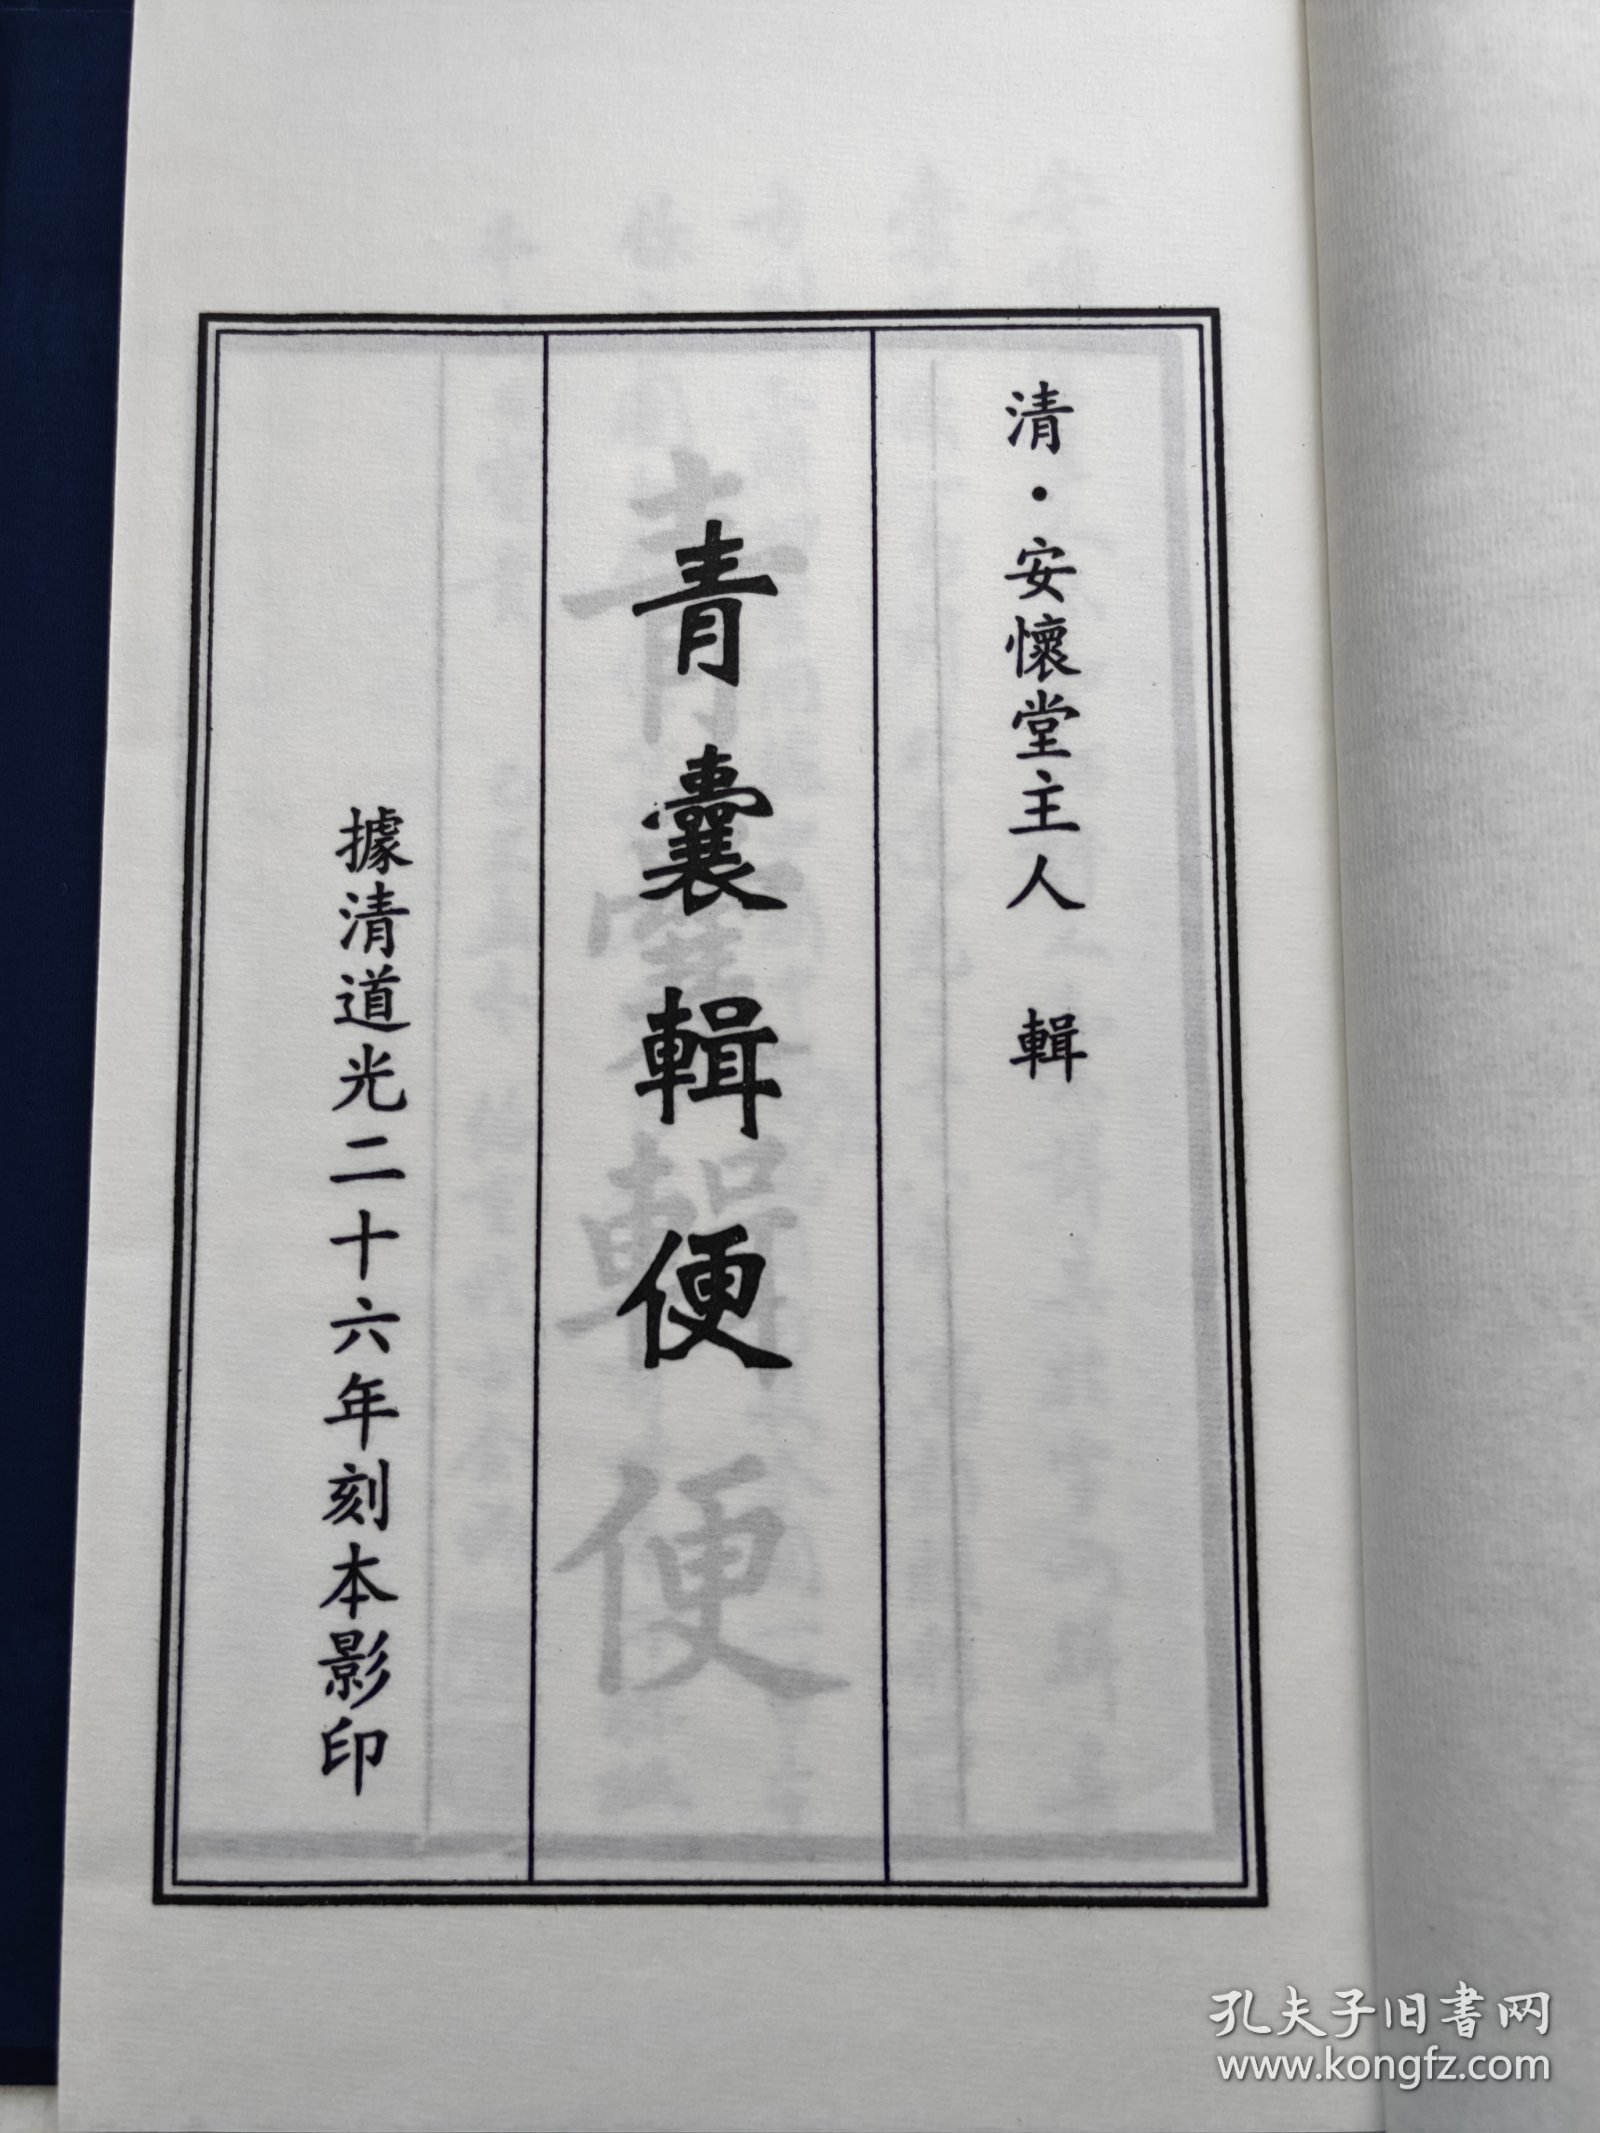 清·安懷堂主人 輯
青囊輯便
據清道光二十六年刻本影印
孔夫子旧書网
www.kongfz.com